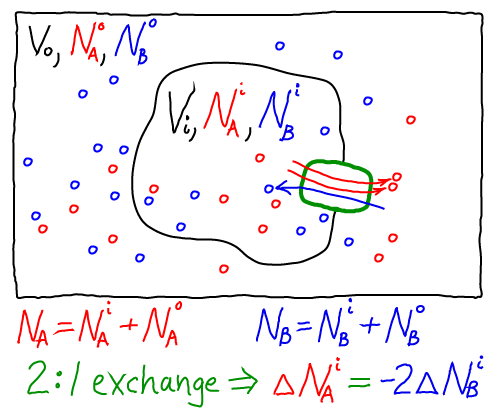 Vₒ, N_A^o N_B^o
Vᵢ, N_A^i, N_B^i
N_A = N_A^i + N_A^o
N_B = N_B^i + N_B^o
2:1 exchange ⇒ ΔN_A^i = -2ΔN_B^i